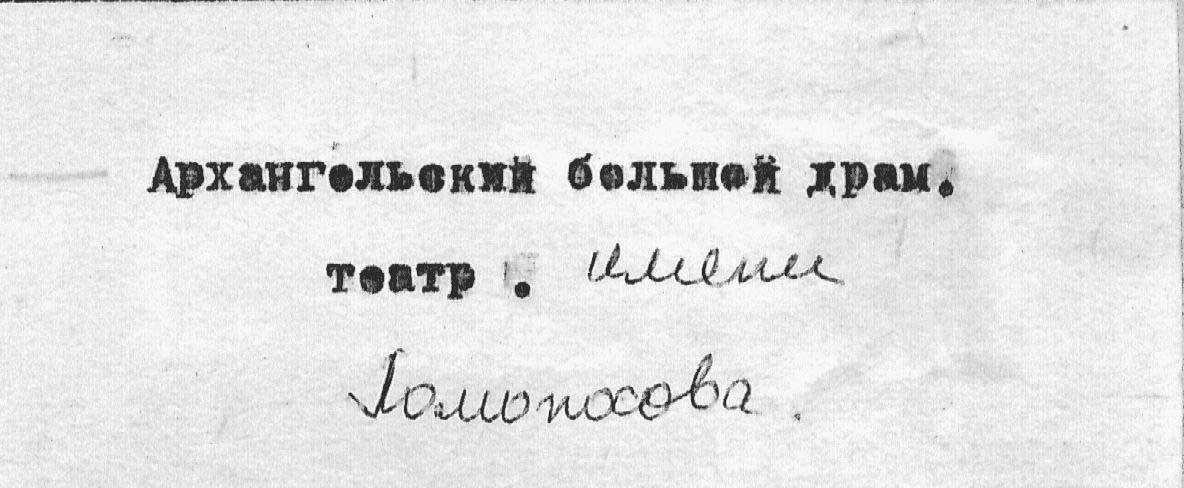 Архангельский большой драм.
театр . имени
Ломоносова .